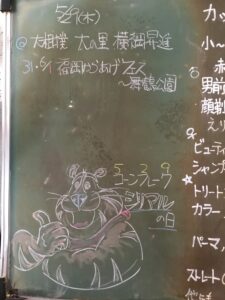 5/29(木)
◎大相撲 大の里 横綱昇進
31.6/1 福岡からあげフェス
〜舞鶴公園
5 2 9
コーンフレーク
シリアル
の日
カッ
小〜
赤
男前
顔剃
えり
ビューティ
シャンプ
★トリート
カラー
パーマ
ストレート(